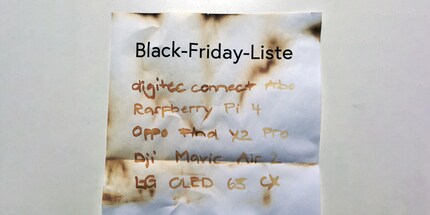 Black-Friday-Liste
digitec connect Abo
Raspberry Pi 4
Oppo Find X2 Pro
Dji Mavic Air 2
LG OLED 65 CX